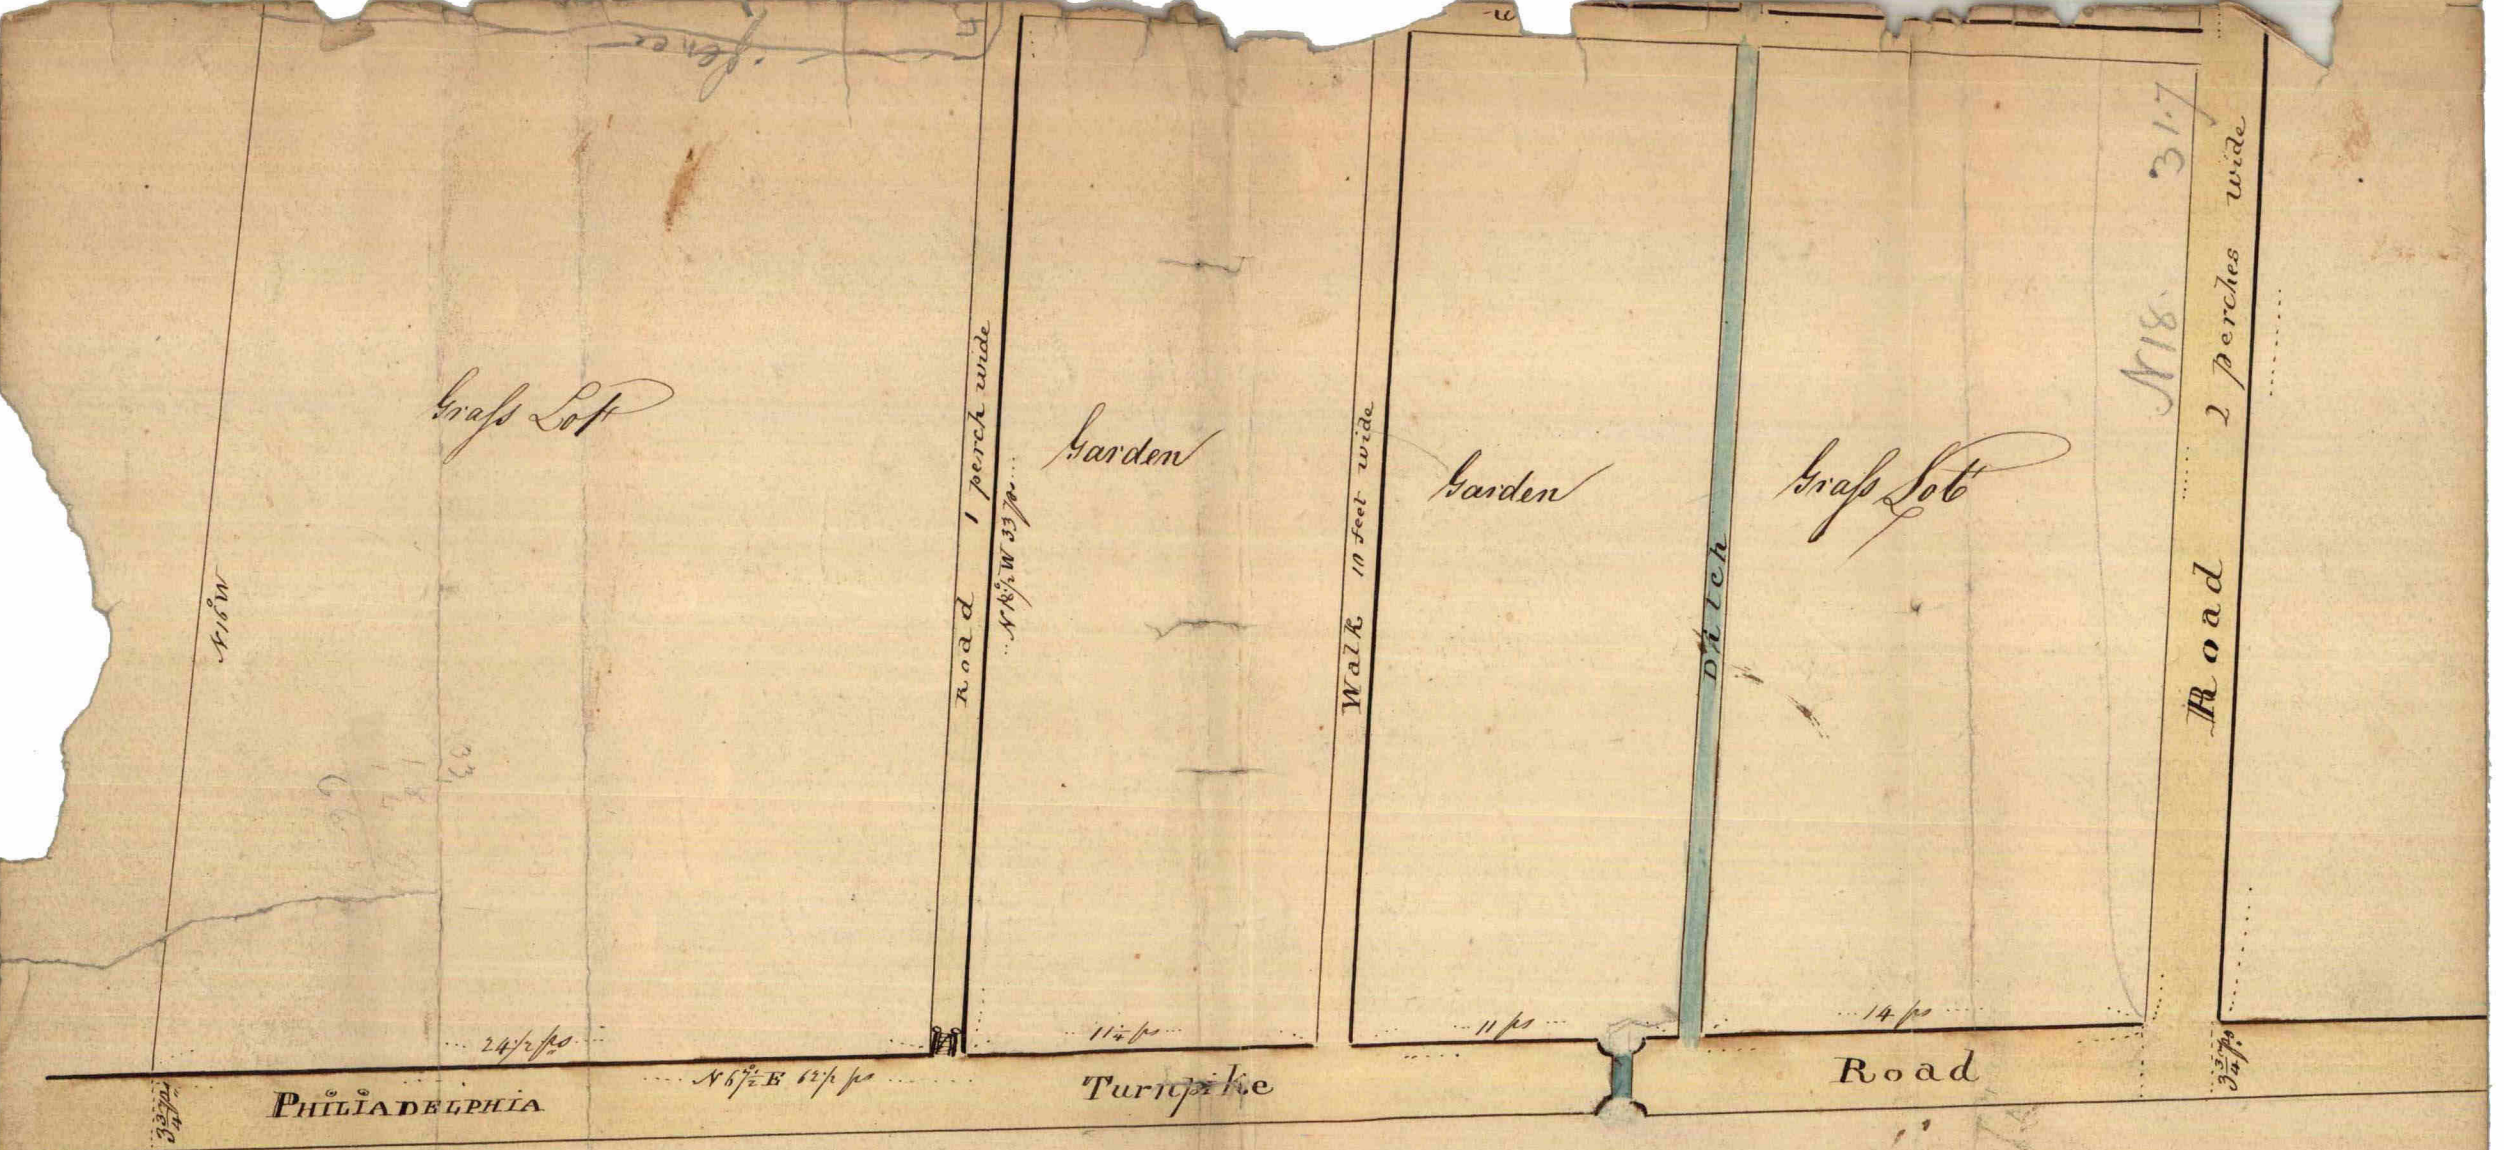 fence
N 16° W
Graſs Lott
Road 1 perch wide
N 18½° W 33 ps
Garden
Walk 10 feet wide
Garden
Ditch
Graſs Lott
N 18. 31.7
Road 2 perches wide
33
66
24 1/2 ps
11 1/4 ps
11 ps
14 ps
N 67½° E 62 1/2 ps
3 3/4 ps
PHILIADELPHIA Turnpike Road
3 3/4 ps